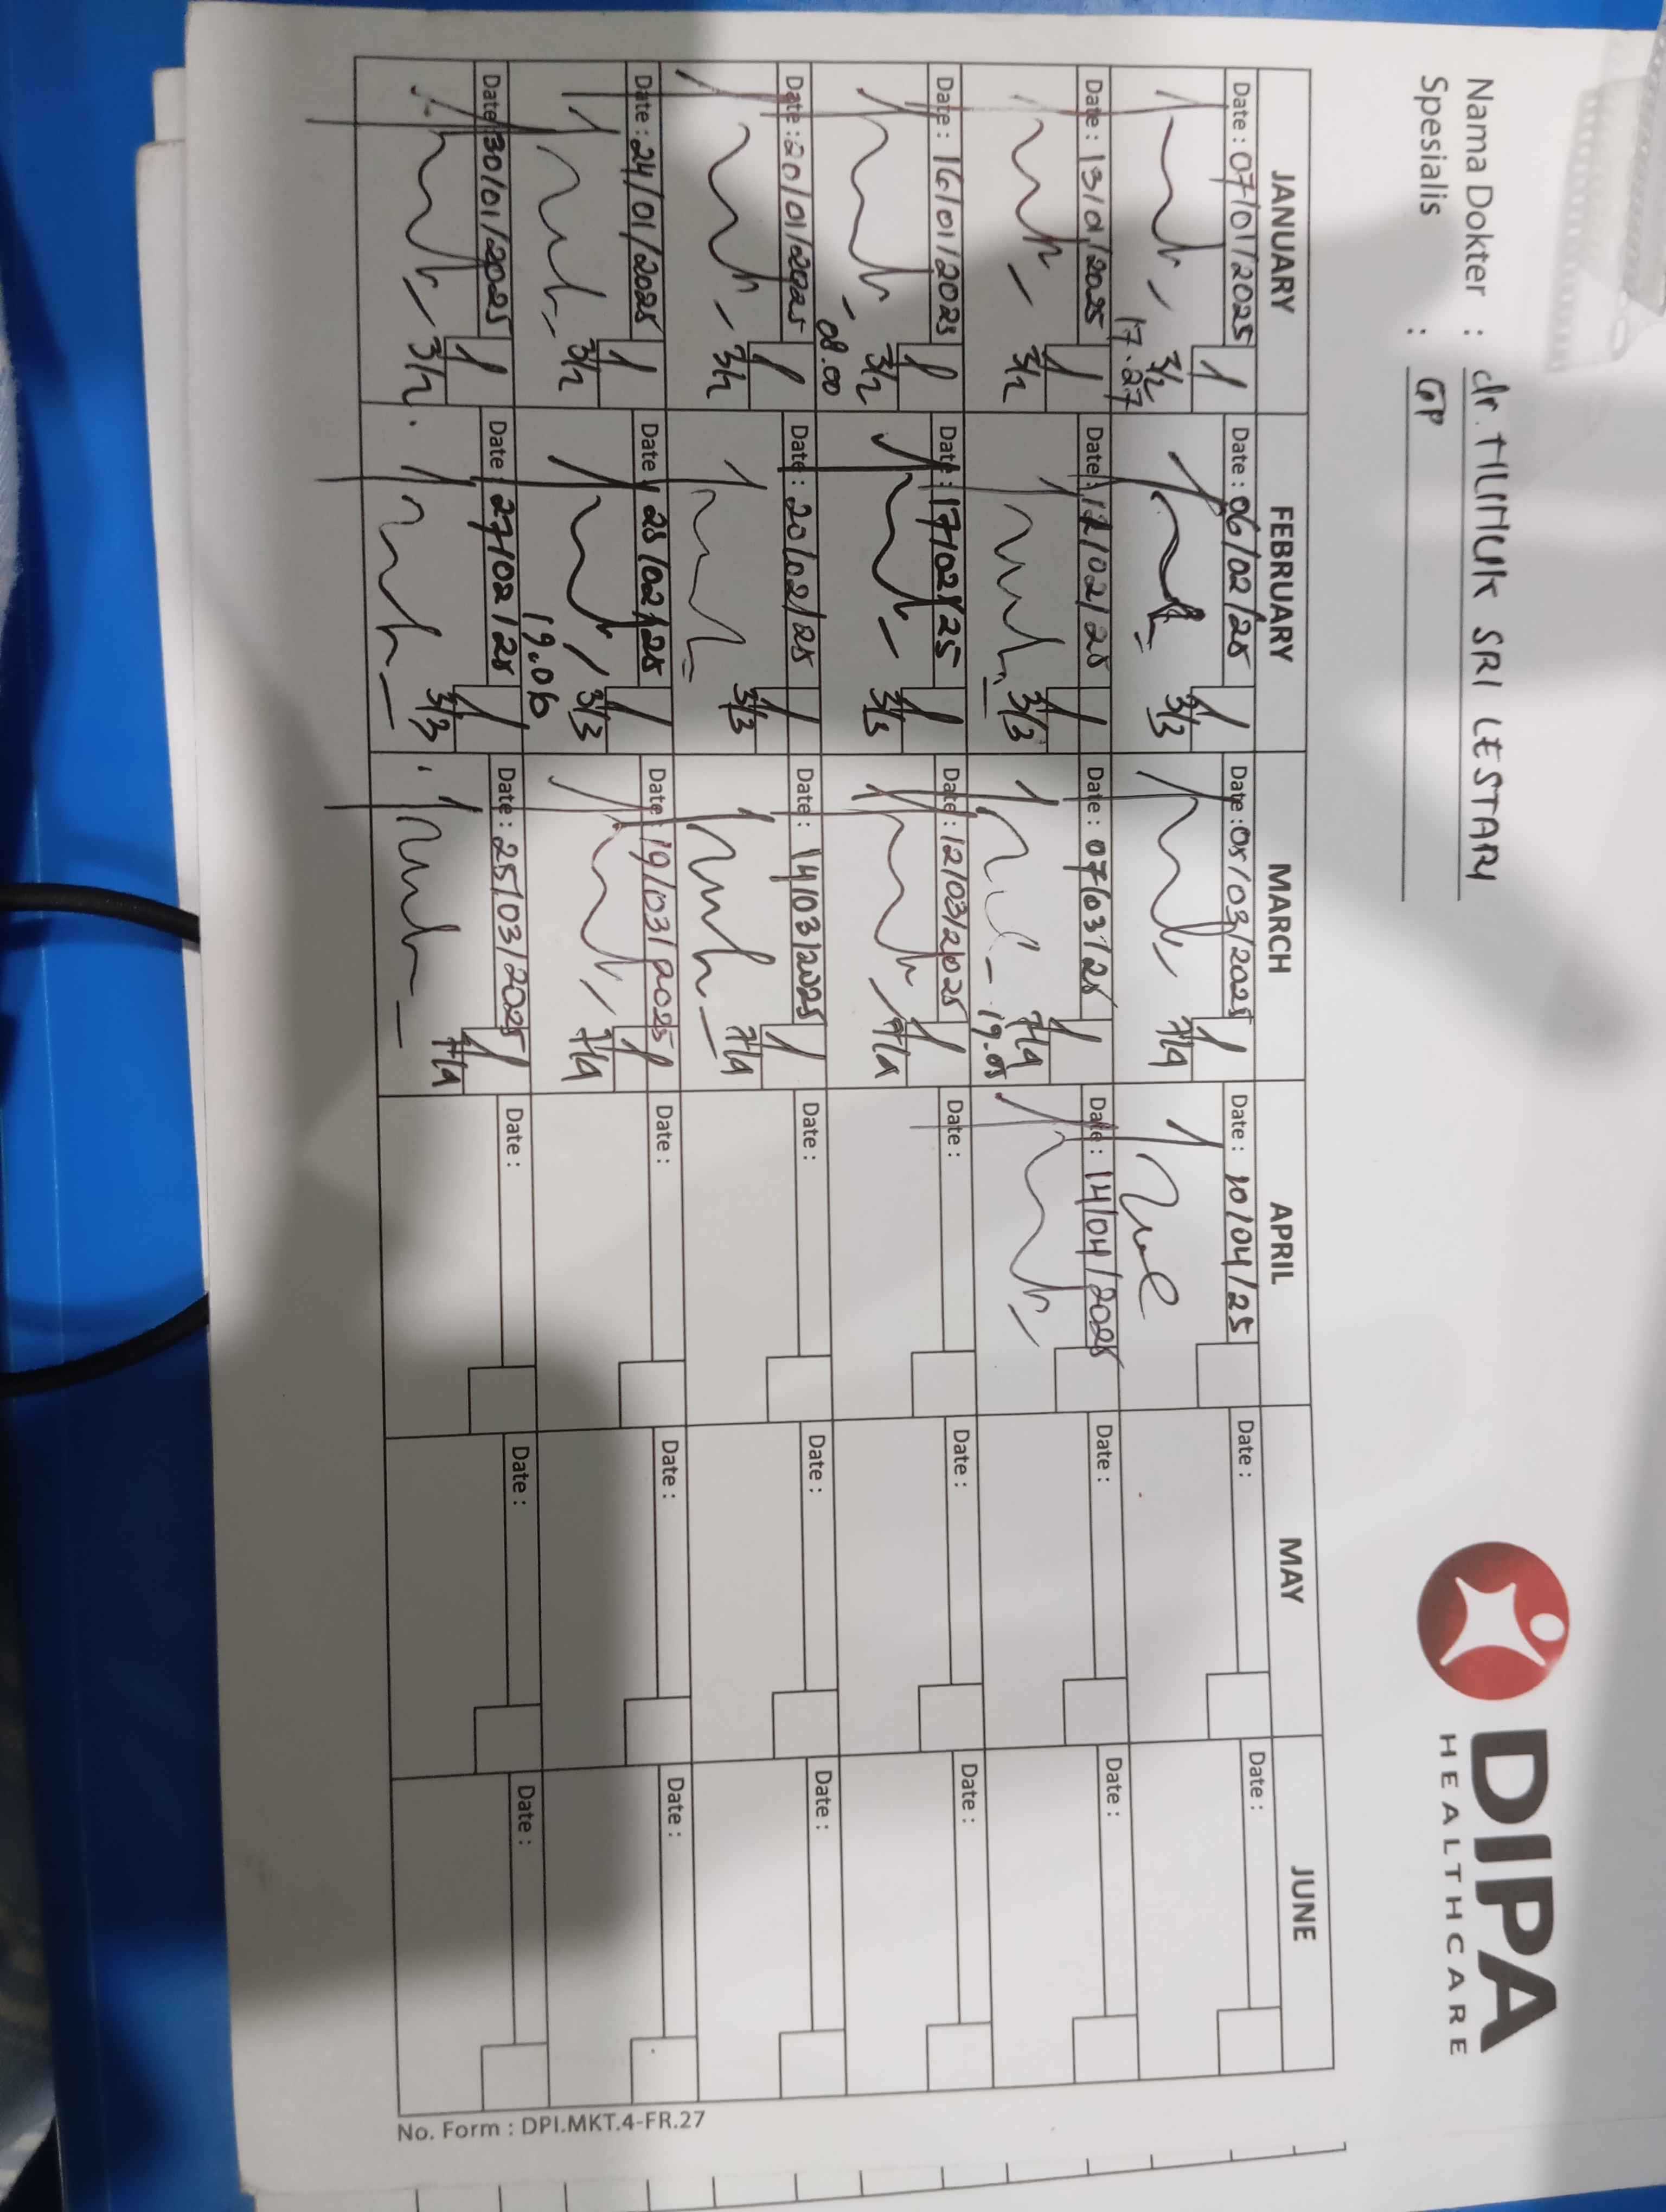 Nama Dokter : dr. TILIMUK SRI LESTARY
Spesialis : GP
DIPA
HEALTHCARE
JANUARY FEBRUARY MARCH APRIL MAY JUNE
Date : 07/01/2025 Date : 06/02/25 Date : 05/03/2025 Date : 10/04/25 Date : Date :
3/2 3/3 7/4
17.27
Date : 13/01/2025 Date : 12/02/25 Date : 07/03/25 Date : 14/04/2025 Date : Date :
3/2 3/3 7/4
19.05
Date : 16/01/2025 Date : 17/02/25 Date : 12/03/2025 Date : Date : Date :
3/2 3/3 7/4
08.00
Date : 20/01/2025 Date : 20/02/25 Date : 14/03/2025 Date : Date : Date :
3/2 3/3 7/4
Date : 24/01/2025 Date : 25/02/25 Date : 19/03/2025 Date : Date : Date :
3/2 3/3 7/4
19.06
Date : 30/01/2025 Date : 27/02/25 Date : 25/03/2025 Date : Date : Date :
3/2 3/3 7/4
No. Form : DPI.MKT.4-FR.27